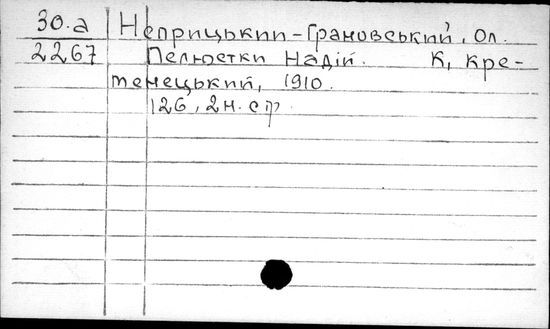 30.а Неприцький-Грановський, Ол.
2267 Пелюстки Надій. К, кре-
менецький, 1910.
126, 2н. ср.